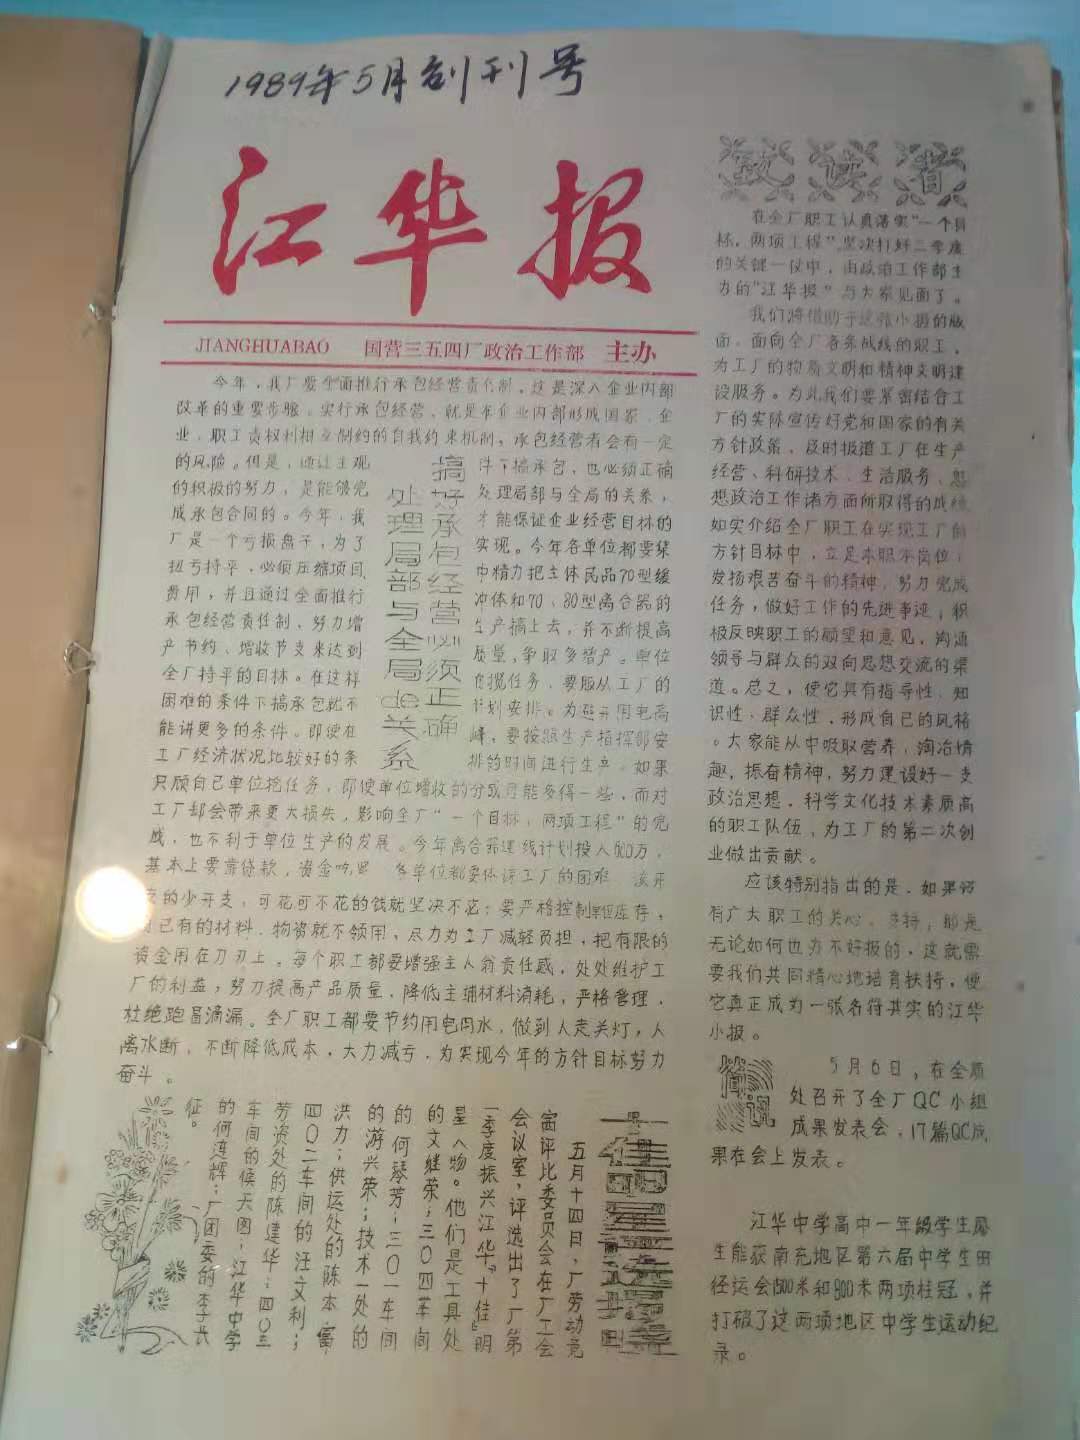 1989年5月创刊号
江华报
JIANGHUABAO 国营三五四厂政治工作部 主办
今年，我厂要全面推行承包经营责任制，这是深入企业内部
改革的重要步骤。实行承包经营，就是在企业内部形成国家、企
业、职工责权利相互制约的自我约束机制。承包经营者会有一定
的风险。但是，通过主观
的积极的努力，是能够完
成承包合同的。今年，我
厂是一个亏损盘子，为了
扭亏持平，必须压缩项目
费用，并且通过全面推行
承包经营责任制、努力增
产节约、增收节支来达到
全厂持平的目标。在这样
困难的条件下搞承包就不
能讲更多的条件。即使在
工厂经济状况比较好的条
搞好承包经营必须正确
处理局部与全局de关系
件下搞承包，也必须正确
处理局部与全局的关系，
才能保证企业经营目标的
实现。今年各单位都要集
中精力把主体民品70型缓
冲体和70、80型离合器的
生产搞上去，并不断提高
质量，争取多增产。单位
揽任务，要服从工厂的
计划安排。为避开用电高
峰，要按照生产指挥部安
排的时间进行生产。如果
只顾自己单位抢任务，即使单位增收的分成可能多得一些，而对
工厂却会带来更大损失，影响全厂“一个目标，两项工程”的完
成，也不利于单位生产的发展。今年离合器建线计划投入600万，
基本上要靠贷款，资金吃 各单位都要体谅工厂的困难
的少开支，可花可不花的钱就坚决不花；要严格控制单位库存，
已有的材料、物资就不领用，尽力为工厂减轻负担，把有限的
资金用在刀刃上。每个职工都要增强主人翁责任感，处处维护工
厂的利益；努力提高产品质量，降低主辅材料消耗，严格管理，
杜绝跑冒滴漏。全厂职工都要节约用电用水，做到人走关灯，人
离水断，不断降低成本，大力减亏，为实现今年的方针目标努力
奋斗。
致读者
在全厂职工认真落实“一个目
标，两项工程”坚决打好二季度
的关键一仗中，由政治工作部主
办的“江华报”与大家见面了。
我们将借助于这张小报的版
面，面向全厂各条战线的职工，
为工厂的物质文明和精神文明建
设服务。为此我们要紧密结合工
厂的实际宣传好党和国家的有关
方针政策，及时报道工厂在生产
经营、科研技术、生活服务、思
想政治工作诸方面所取得的成绩，
如实介绍全厂职工在实现工厂的
方针目标中，立足本职岗位，
发扬艰苦奋斗的精神，努力完成
任务，做好工作的先进事迹；积
极反映职工的愿望和意见，沟通
领导与群众的双向思想交流的渠
道。总之，使它具有指导性、知
识性、群众性，形成自己的风格
。大家能从中吸取营养，陶冶情
趣，振奋精神，努力建设好一支
政治思想、科学文化技术素质高
的职工队伍，为工厂的第二次创
业做出贡献。
应该特别指出的是，如果没
有广大职工的关心、支持，那是
无论如何也办不好报的，这就需
要我们共同精心地培育扶持，使
它真正成为一张名符其实的江华
小报。
简讯
5月6日，在全质
处召开了全厂QC小组
成果发表会，17篇QC成
果在会上发表。
江华中学高中一年级学生
生能获南充地区第六届中学生田
径运会1500米和800米两项桂冠，并
打破了这两项地区中学生运动纪
录。
十佳明星选揭
五月十四日，厂劳动竞
赛评比委员会在厂工会
会议室，评选出了厂第
一季度振兴江华“十佳”明
星人物。他们是工具处
的文继荣；三〇四车间
的何琴芳；三〇一车间
的游兴荣；技术一处的
洪力；供运处的陈本富
四〇二车间的汪文利；
劳资处的陈建华；四〇三
车间的候天图；江华中学
的何连辉；厂团委的李长
征。